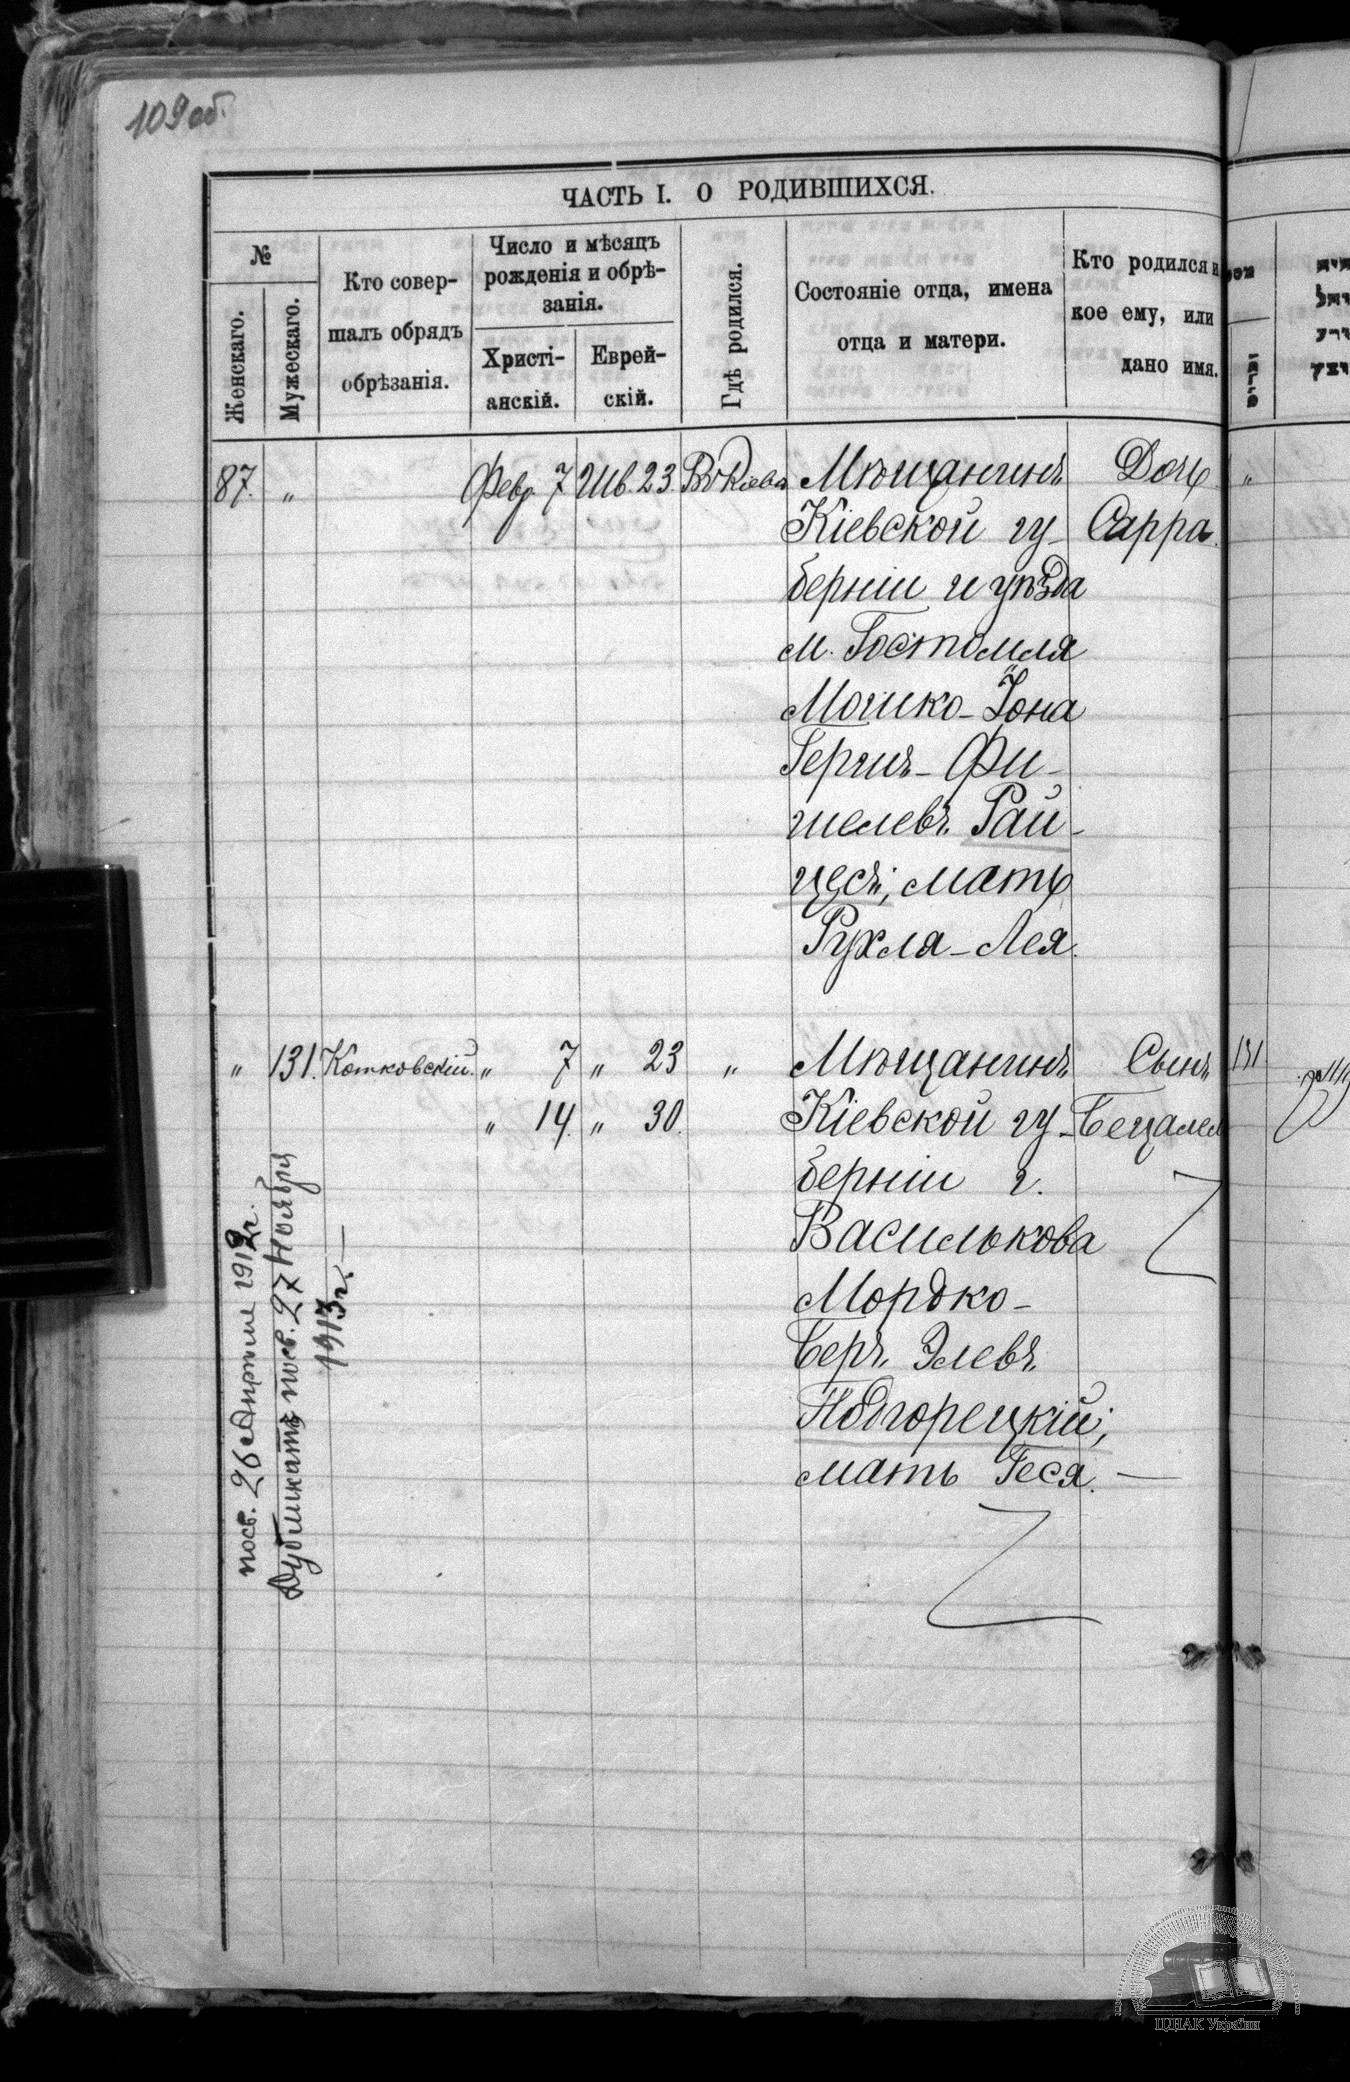 109 об.
ЧАСТЬ I. О РОДИВШИХСЯ.
№
Женскаго.
Мужескаго.
Кто совер-
шалъ обрядъ
обрѣзанія.
Число и мѣсяцъ
рожденія и обрѣ-
занія.
Христі-
анскій.
Еврей-
скій.
Гдѣ родился.
Состояніе отца, имена
отца и матери.
Кто родился и
кое ему, или
дано имя.
87. " Февр. 7 Шв. 23. Въ Кіевѣ Мѣщанинъ Дочь "
Кіевской гу- Сарра.
берніи и уѣзда
м. Гостомля
Мошко-Іона
Гершъ-Фи-
шелевъ Рай-
цесъ; мать
Рухля-Лея.
" 131. Котковскій. " 7 " 23 " Мѣщанинъ Сынъ 131
" 14. " 30. Кіевской гу- Бецалел
берніи г.
Василькова
Мордко-
Беръ Элевъ
Подгорецкій;
мать Геся.
посв. 26 Апрѣля 1912 г.
Дубликатъ посв. 27 Ноября
1913 г.
ЦДІАК України